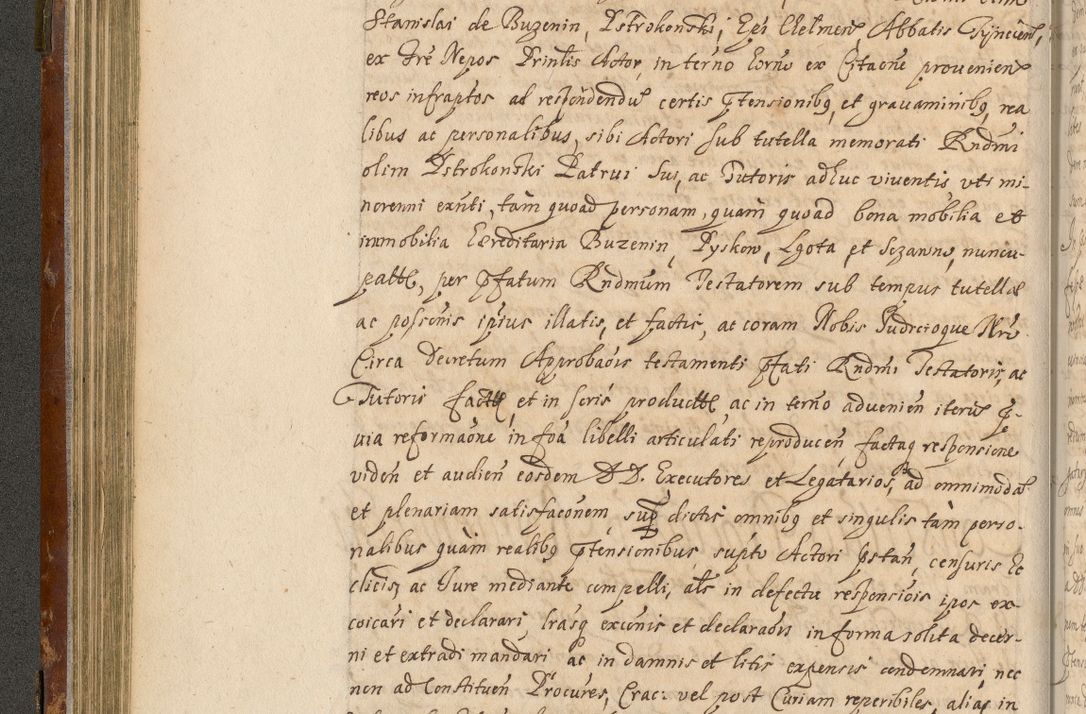 Stanislai de Buzenin, Pstrokonski, Epi Chelmen, Abbatis Tÿnecien,
ex fre Nepos Printis Actor, in terno horno ex Citaone provenien
reos infraptos ad respondendu certis ptensionibq, et grauaminibq, rea
libus ac personalibus, sibi Actori sub tutella memorati Rndmi
olim Pstrokonski Patrui sui, ac Tutoris adhuc viventis, vti mi-
norenni exnti, tam quoad personam, quam quoad bona mobilia et
immobilia Hæreditaria Buzenin, Pyskow, Lgota, et Sczawno, nuncu-
patte, per pfatum Rndmum Testatorem sub tempus tutellæ
ac possonis ipius illatis, et factis, ac coram Nobis Judicioque Nro
Circa Decretum Approbaois testamenti pfati Rndmi Testatoris, ac
Tutoris factte, et in scris productte, ac in terno advenien iteru p-
uia reformaone in foa libelli articulati reproducen, factaq responsione
viden et audien eosdem DD. Executores et Legatarios, ad omnimoda
et plenariam satisfaconem, sup dictis omnibq et singulis tam perso-
nalibus quam realibq ptensionibus, supto Actori pstan, censuris Ec
clicis, ac Jure mediante compelli, als in defectu responsiois ipos ex-
coicari et declarari lrasq excunis et declaraois in forma solita decer-
ni et extradi mandari ac in damnis et litis expensis condemnari, nec
non ad Constituen Procures, Crac: vel post Curiam reperibiles, alias in